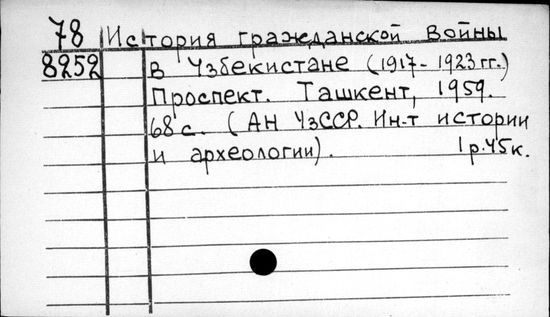 78 История гражданской войны
8252 в Узбекистане (1917-1923 гг.)
Проспект. Ташкент, 1959.
68 с. (АН УзССР. Ин-т истории
и археологии). 1 р. 45 к.